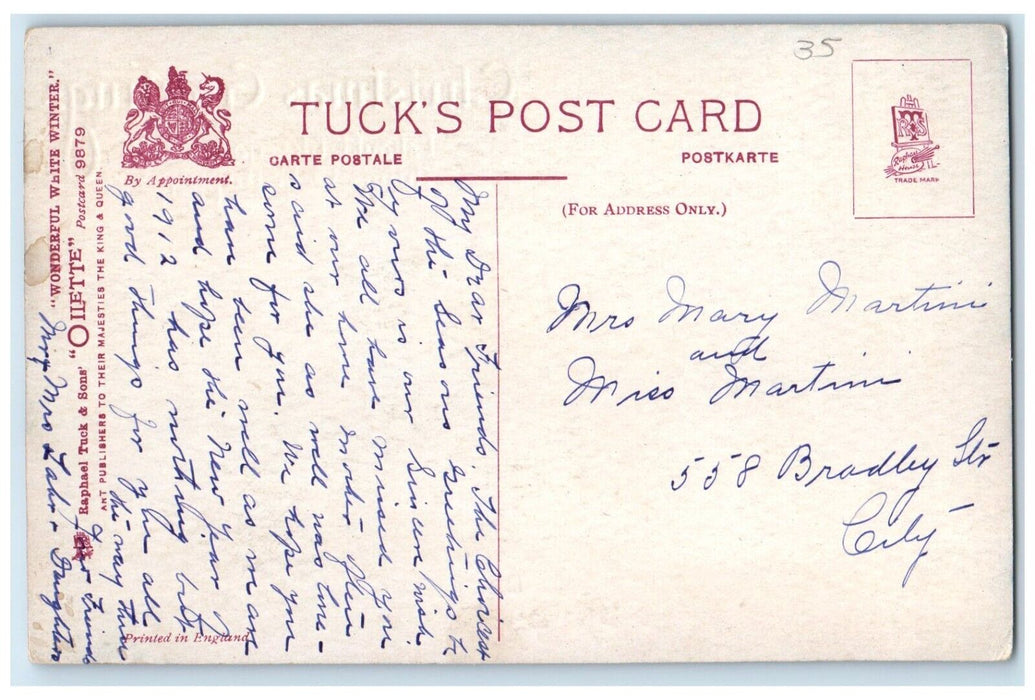 35
TUCK'S POST CARD
CARTE POSTALE
POSTKARTE
By Appointment.
(FOR ADDRESS ONLY.)
Raphael House
TRADE MARK
"WONDERFUL WHITE WINTER."
Raphael Tuck & Sons' "OILETTE" Postcard 9879
ART PUBLISHERS TO THEIR MAJESTIES THE KING & QUEEN.
My Dear Friends. The Choicest
of the Seasons Greetings to
y ours is our Sincere wish.
We all have missed you
at our home Mother often
said she as well was lone-
some for you. We hope you
have been well as we are
and hope the New Year of
1912 has nothing but
good things for you all
the way thru
Your Friends
Mrs
Daughters
Printed in England
Mrs Mary Martini
and
Miss Martini
558 Bradley Str
City